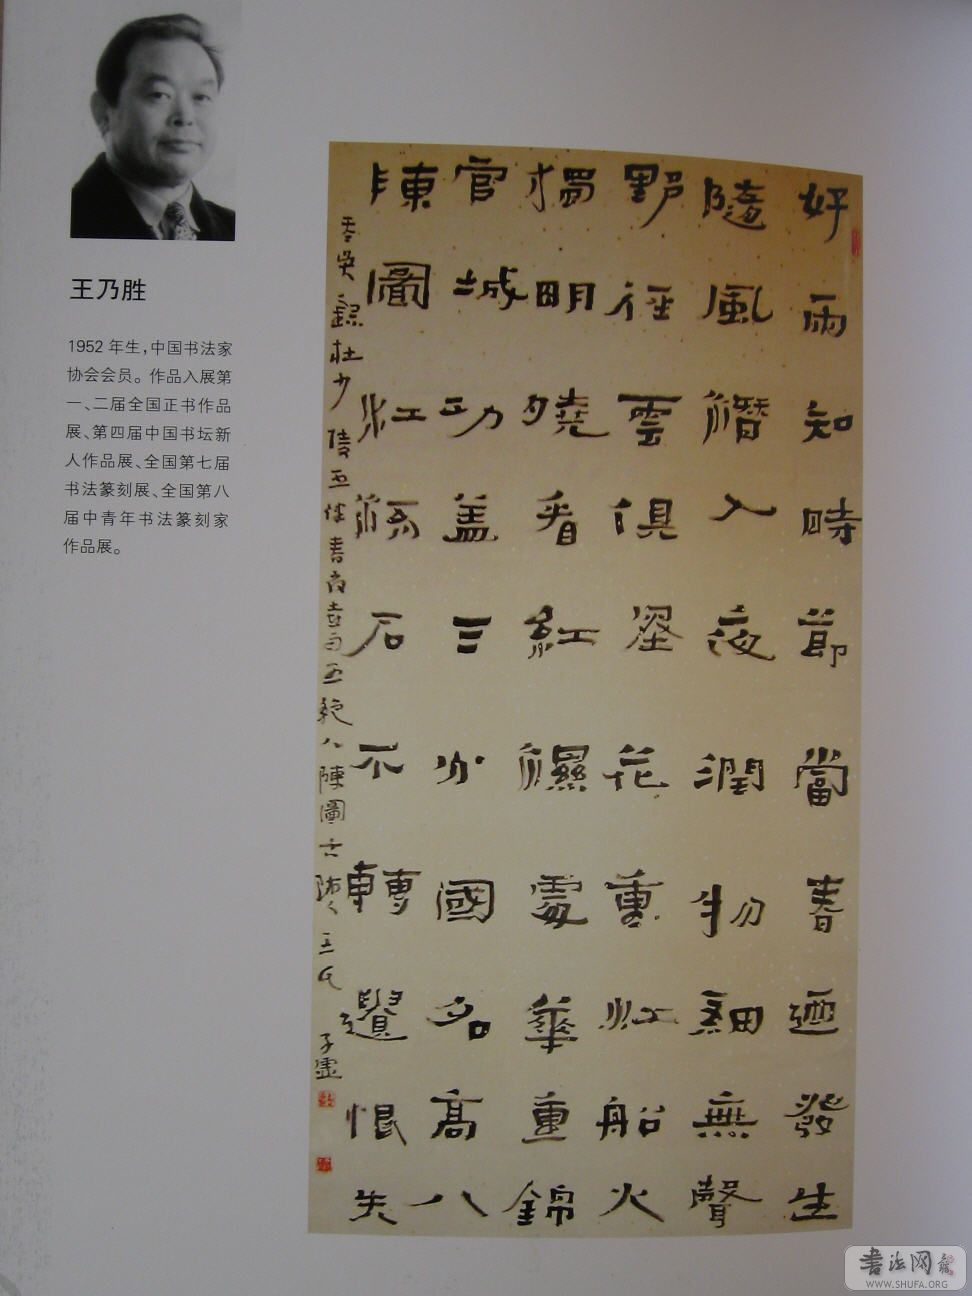 王乃胜
1952 年生，中国书法家
协会会员。作品入展第
一、二届全国正书作品
展、第四届中国书坛新
人作品展、全国第七届
书法篆刻展、全国第八
届中青年书法篆刻家
作品展。
好雨知時節當春迺發生
隨風潛入夜潤物細無聲
野徑雲俱花重江船火
獨明曉看紅濕處華重錦
官城功蓋三分國名高八
陳圖江流石不轉遺恨失
吞吳錄杜少陵五律春夜喜雨五絕八陳圖王氏子靈
书法网
WWW.SHUFA.ORG